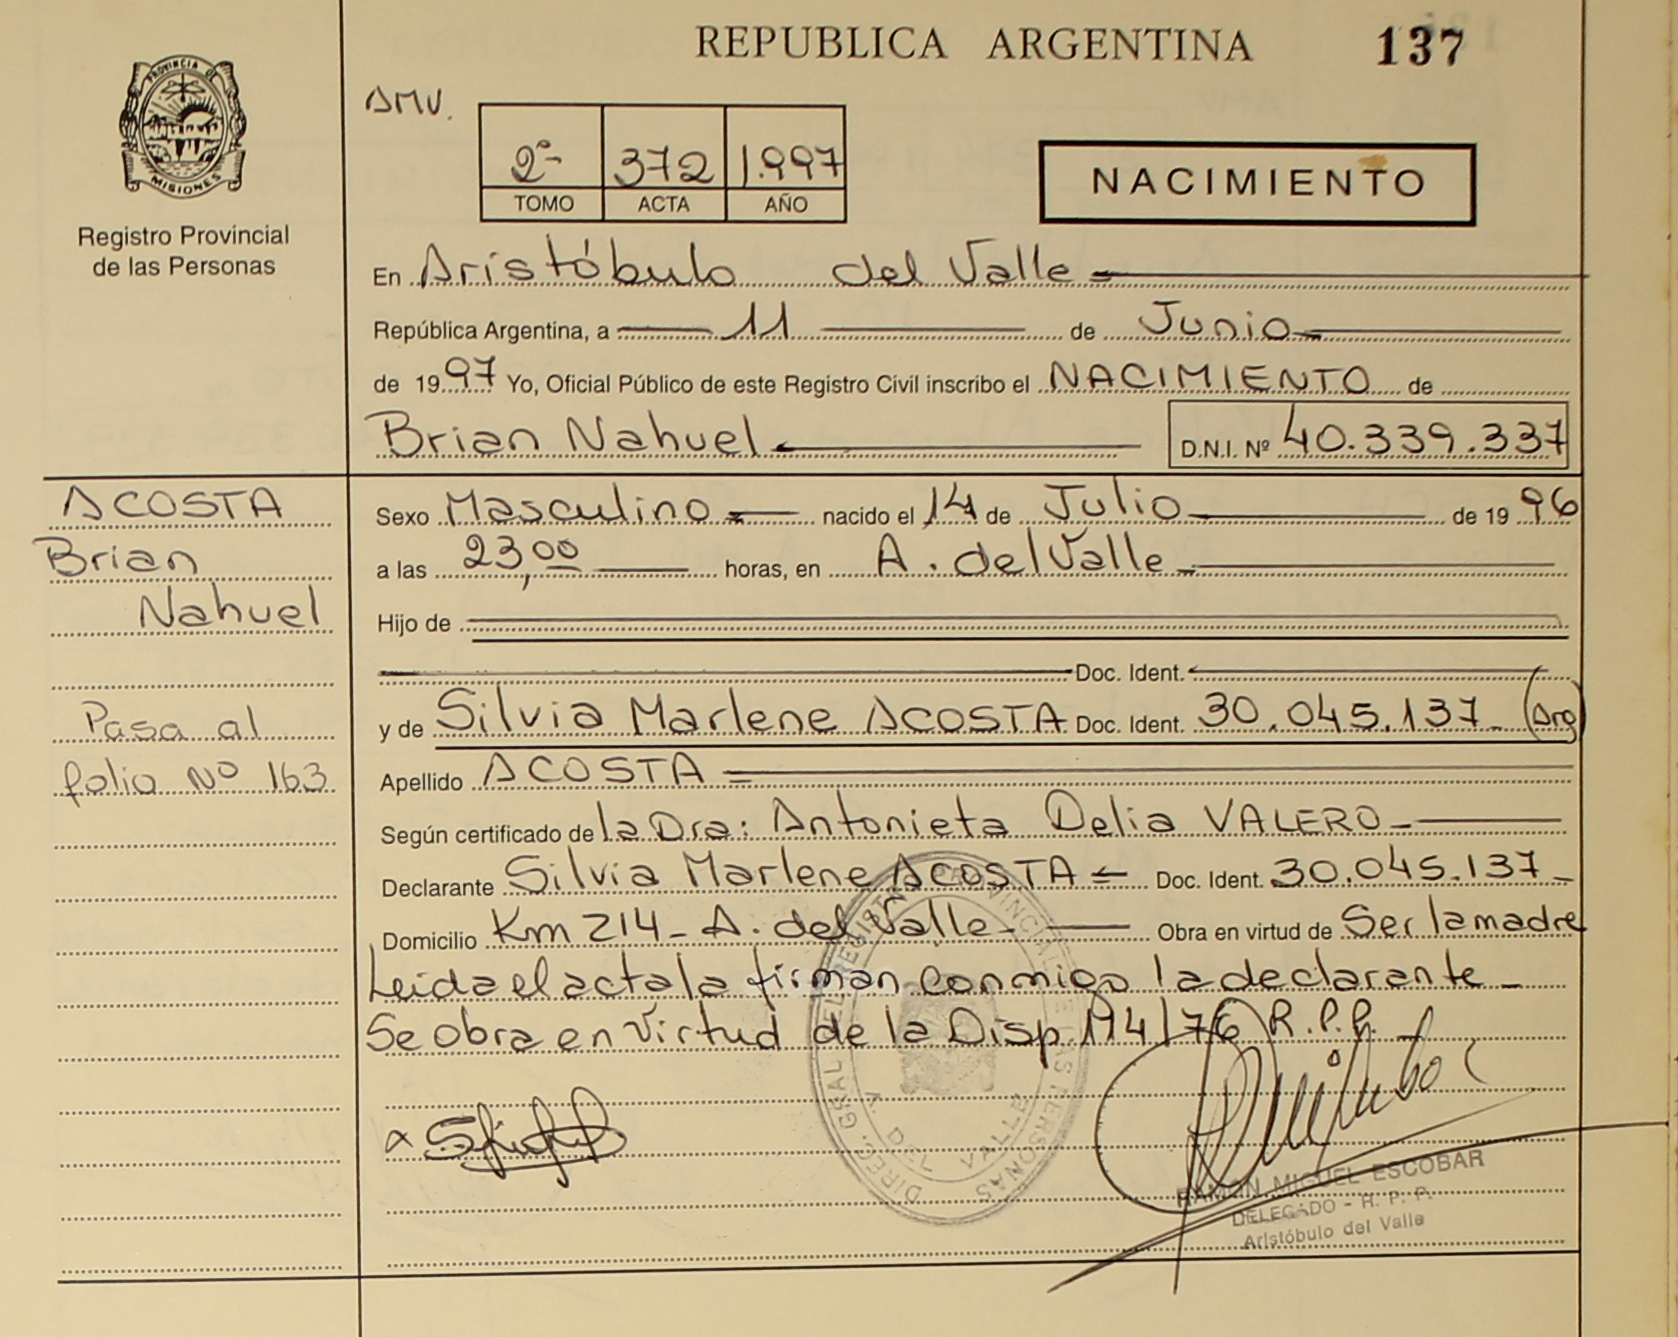 REPUBLICA ARGENTINA 137
PROVINCIA DE
MISIONES
Registro Provincial
de las Personas
AMV.
2º 372 1.997
TOMO ACTA AÑO
NACIMIENTO
En Aristóbulo del Valle
República Argentina, a 11 de Junio
de 1997 Yo, Oficial Público de este Registro Civil inscribo el NACIMIENTO de
Brian Nahuel D.N.I. Nº 40.339.337
ACOSTA
Brian
Nahuel
Pasa al
folio Nº 163
Sexo Masculino nacido el 14 de Julio de 1996
a las 23,00 horas, en A. del Valle
Hijo de
Doc. Ident.
y de Silvia Marlene ACOSTA Doc. Ident. 30.045.137 (Arg)
Apellido ACOSTA
Según certificado de la Dra: Antonieta Delia VALERO
Declarante Silvia Marlene ACOSTA Doc. Ident. 30.045.137
Domicilio Km 214 - A. del Valle - Obra en virtud de Ser la madre
Leida el acta la firman conmigo la declarante
Se obra en virtud de la Disp 194/76 R.P.P.
DIREC. GRAL DEL REGISTRO PROVINCIAL DE LAS PERSONAS
A. DEL VALLE
RAMON MIGUEL ESCOBAR
DELEGADO - R. P. P.
Aristóbulo del Valle